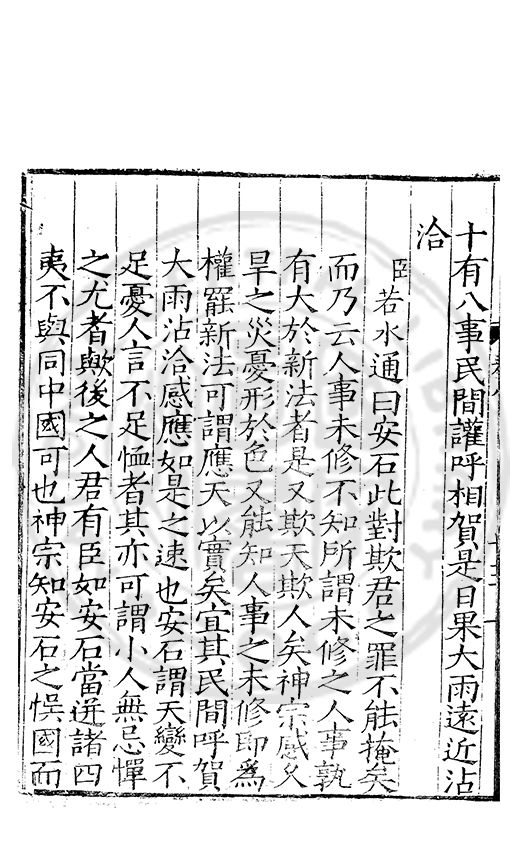 十有八事民間讙呼相賀是日果大雨遠近沾
洽
臣若水通曰安石此對欺君之罪不能掩矣
而乃云人事未修不知所謂未修之人事孰
有大於新法者是又欺天欺人矣神宗感久
旱之災憂形於色又能知人事之未修即爲
權罷新法可謂應天以實矣宜其民間呼賀
大雨沾洽感應如是之速也安石謂天變不
足憂人言不足恤者其亦可謂小人無忌憚
之尤者歟後之人君有臣如安石當迸諸四
夷不與同中國可也神宗知安石之悞國而